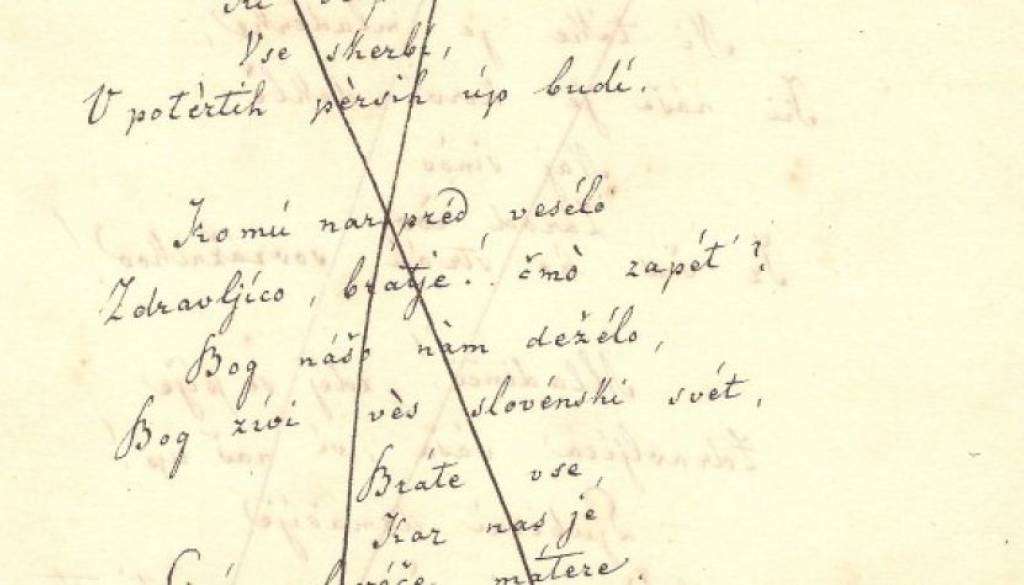 Vse skerbí,
V potèrtih pèrsih úp budí.
Komú narpréd vesélo
Zdravljíco, brátje! čmò zapét'?
Bog nášo nàm dežélo,
Bog živi vès slovénski svét,
Bráte vse,
Kar nas je
mátere.